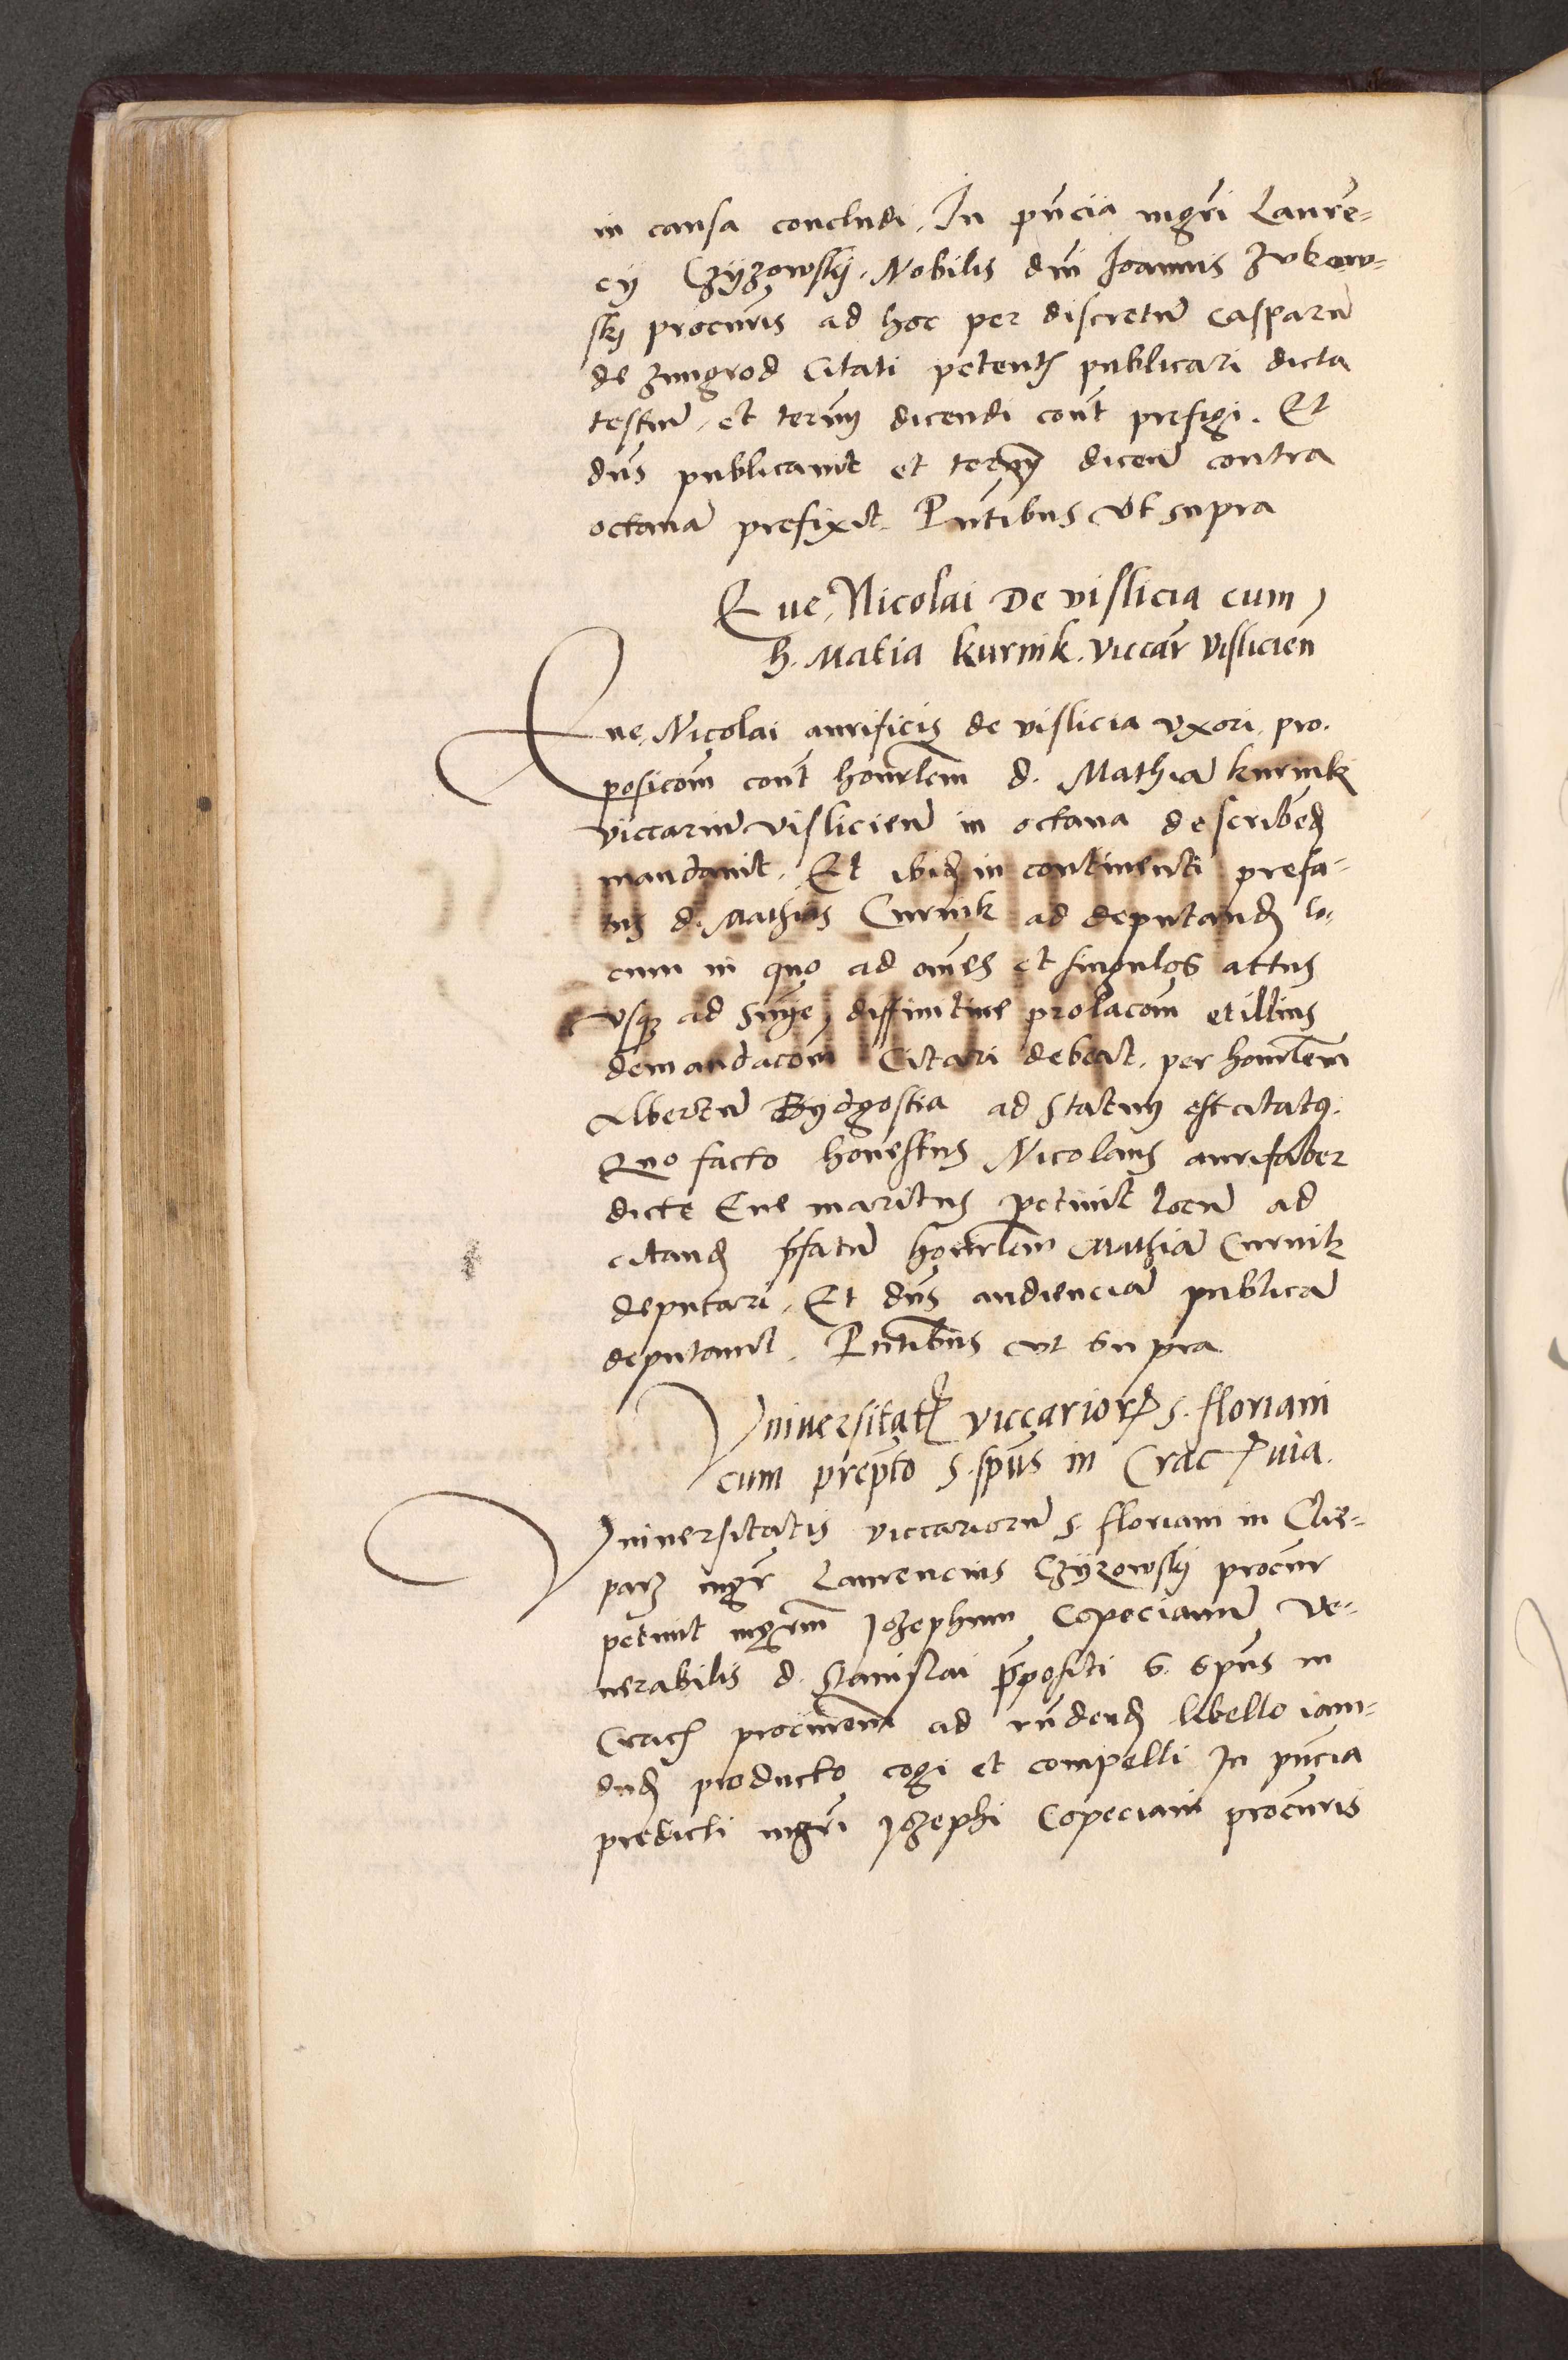 in causa concludi. In pñcia mgri Lauren=
cij Czÿzowskÿ. Nobilis dñi Joannis Zukow=
skj procuris ad hoc per discretũ Casparũ
de Zmigrod Citati petentꝭ publicari dicta
testiũ, et termĩ dicendi cont prefigi. Et
dñs publicauit et termĩ dicenď contra
octauã prefixit. Pñtibus vt supra
Eue, Nicolai De vislicia cum
h. Matia Kurnik. viccar vislicieñ
Eue, Nicolai aurificis de vislicia vxori, pro.
posicom cont honrlem d. Mathiã kurnik
viccariũ vislicienẽ in octaua describeď
mandauit. Et ibiď in continenti prefa=
tus d. Mathias Curnik ad deputanď lo.
cum in quo ad om̃es et singulos actus
vsqꝫ ad sn̄ie, diffinitiue prolacom et illius
demandacom Citari debeat. per honrlem
Albertũ Bydgostia ad Statum est citatꝰ.
Quo facto honestus Nicolaus aurifaber
dicte Eue maritus petiuit locũ ad
citanď pfatũ honrlem Mathiã Curnik
deputari. Et dñs audienciã publicã
deputauit. Pñtibus vt supra
Vniuersitatꝭ viccarioꝝ S. floriani
cum prepto S. spũs in Crac ꝯ uia.
Vniuersitatis viccariorũ S. floriani in Cle=
parz mgr Laurencius Czÿzowskÿ procur
petiuit mgrm Jozephum Copecianũ ve=
nerabilis d. Stanislai ppositi S. Spũs in
Cracꝭ procurem ad rñdenď libello iam=
duď producto cogi et compelli In pñcia
predicti mgri Jozephi Copeciani procuris